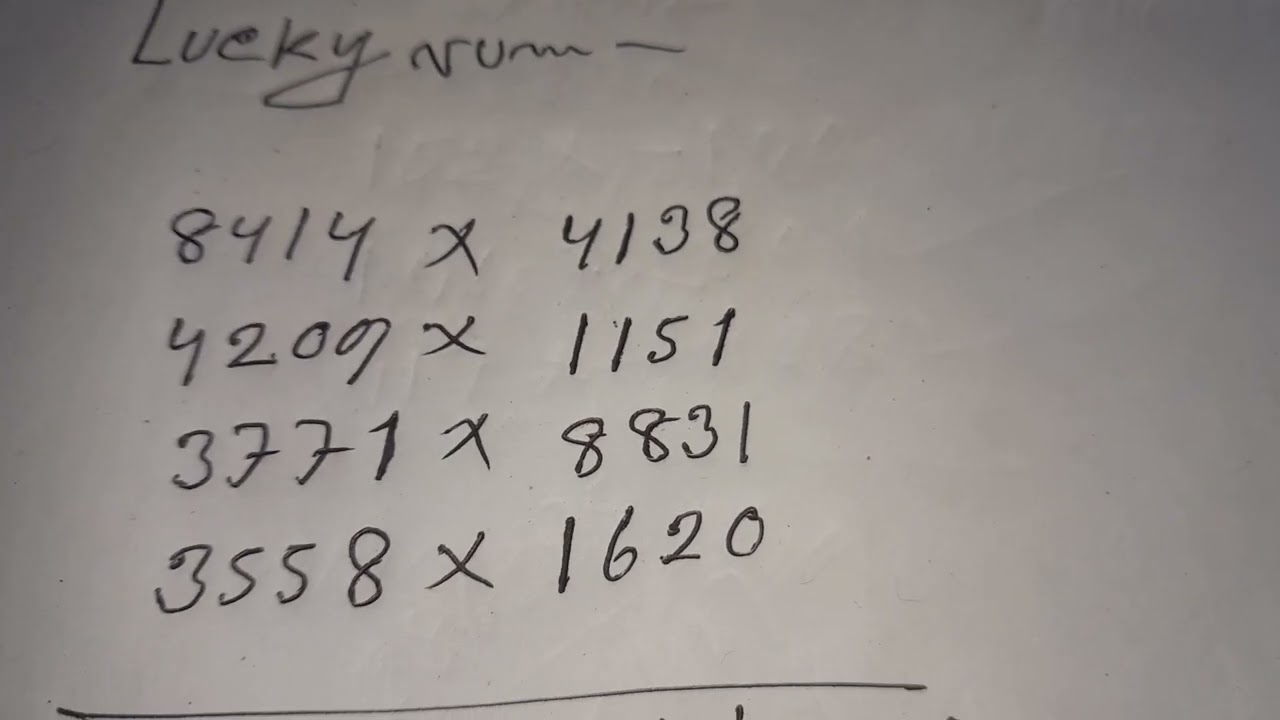 Lucky num —
8414 x 4138
4209 x 1151
3771 x 8831
3558 x 1620